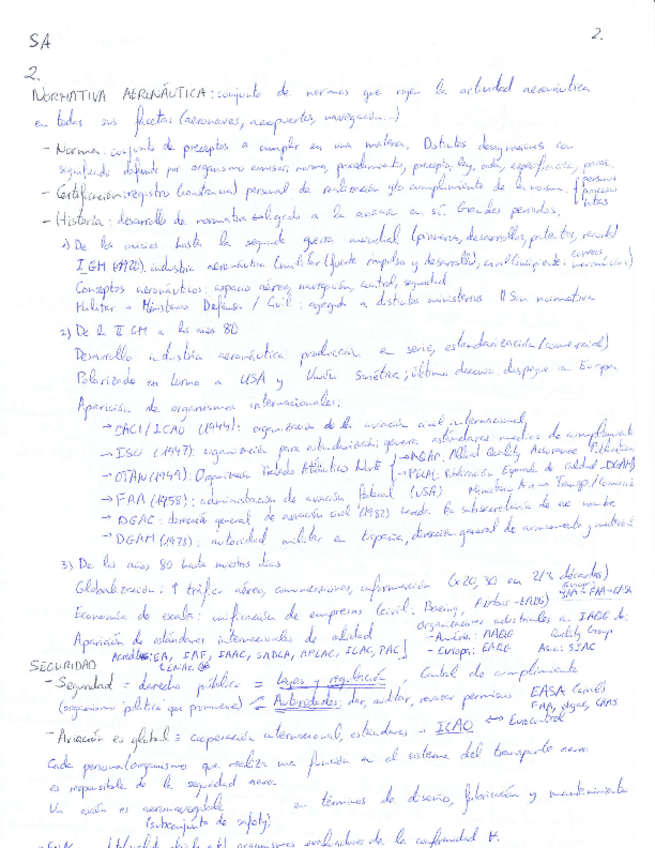 SA
2.
2.
NORMATIVA AERONÁUTICA: conjunto de normas que rigen la actividad aeronáutica
en todas sus facetas (aeronaves, aeropuertos, navegación...)
- Norma: conjunto de preceptos a cumplir en una materia. Distintas denominaciones con
significado definido por organismo emisor: norma, procedimiento, precepto, ley, orden, especificación,
- Certificación: registro personal de realización y/o cumplimiento de la norma.
personas
procesos
- Historia: desarrollo de normativa ligado a la aviación en sí. Grandes periodos.
1) De los inicios hasta la segunda guerra mundial (pioneros, desarrollos,
I GM industria aeronáutica (militar (fuerte impulso y desarrollo), civil incipiente: correos,
Conceptos aeronáuticos: espacio aéreo, navegación, control, seguridad
Militar → Ministerio Defensa / Civil: agregado a distintos ministerios // Sin normativa
2) De la II GM a los años 80
Desarrollo industria aeronáutica producción en serie, estandarización (comercial)
Polarizado en torno a USA y Unión Soviética; última decena: despegue en Europa
Aparición de organismos internacionales:
→ OACI/ICAO (1944): organización de la aviación civil internacional
→ ISO (1947): organización para estandarización; genera estándares: medios de cumplimiento
→ OTAN (1949): Organización Tratado Atlántico Norte
→ AQAP: Allied Quality Assurance Publication
→ PECAL: Publicación Española de Calidad - DGAM
→ FAA (1958): administración de aviación federal (USA)
→ DGAC: dirección general de aviación civil hereda la subsecretaría de ese nombre
→ DGAM: autoridad militar en España, dirección general de armamento y material
3) De los años 80 hasta nuestros días
Globalización: ↑ tráfico aéreo, comunicaciones, información (x20, 30 en 2/3 décadas)
Economía de escala: unificación de empresas (civil: Boeing, Airbus - EADS)
Aparición de estándares internacionales de calidad
organizaciones industriales → IAQG de:
- América: AAQG Quality Group
- Europa: EAQG Asia:
Acredita: EA, IAF, IAAC, SADCA, APLAC, ILAC, PAC]
SEGURIDAD
- Seguridad = derecho público = Leyes y regulación, Control de cumplimiento
(organismo político que promueve) Autoridades: dar, auditar, revocar permisos EASA
FAA, DGAC,
- Aviación es global = cooperación internacional, estándares → ICAO ↔ Eurocontrol
Cada persona/organismo que realiza una función en el sistema del transporte aéreo
es responsable de la seguridad aérea.
Un avión es aeronavegable en términos de diseño, fabricación y mantenimiento
(subconjunto de safety)
organismos evaluadores de la conformidad